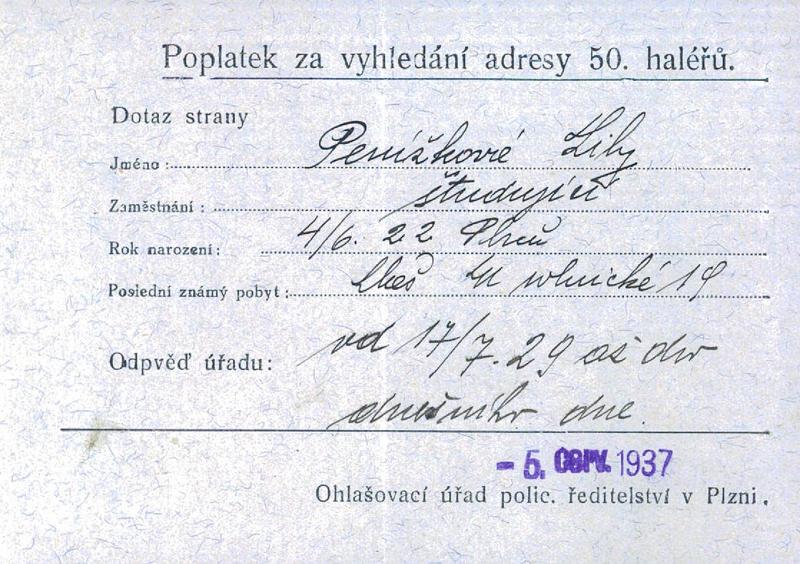 Poplatek za vyhledání adresy 50. haléřů.
Dotaz strany
Jméno: Penížkové Lily
Zaměstnání: študující
Rok narození: 4/6. 22 Plzeň
Poslední známý pobyt: 19
Odpvěď úřadu: od 17/7. 29 až do
dnešního dne.
- 5. 1937
Ohlašovací úřad polic. ředitelství v Plzni.